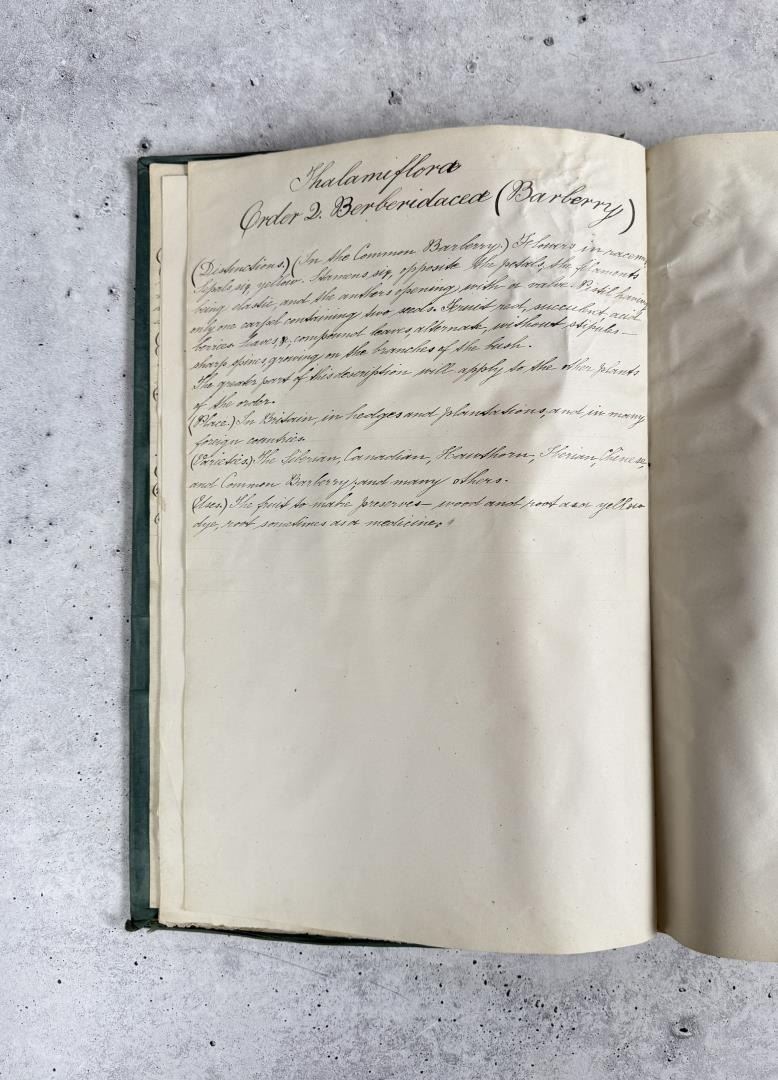 Thalamiflora
Order 2. Berberidacea (Barberry)
(Distinctions.) (In the Common Barberry.) Flowers in racemes
Sepals six, yellow. Stamens six, opposite the petals, the filaments
being elastic, and the anthers opening with a valve. Pistil having
only one carpel containing two seeds. Fruit red, succulent, acid
berries. Leaves, compound leaves, alternate, without stipules—
sharp spines, growing on the branches of the bush.
The greater part of this description will apply to the other plants
of the order.
(Place.) In Britain, in hedges and plantations, and in many
foreign countries.
(Varieties.) The Siberian, Canadian, Hawthorn, Iberian, Chinese,
and Common Barberry, and many others.
(Uses.) The fruit to make preserves— wood and root as a yellow
dye, root sometimes as a medicine.